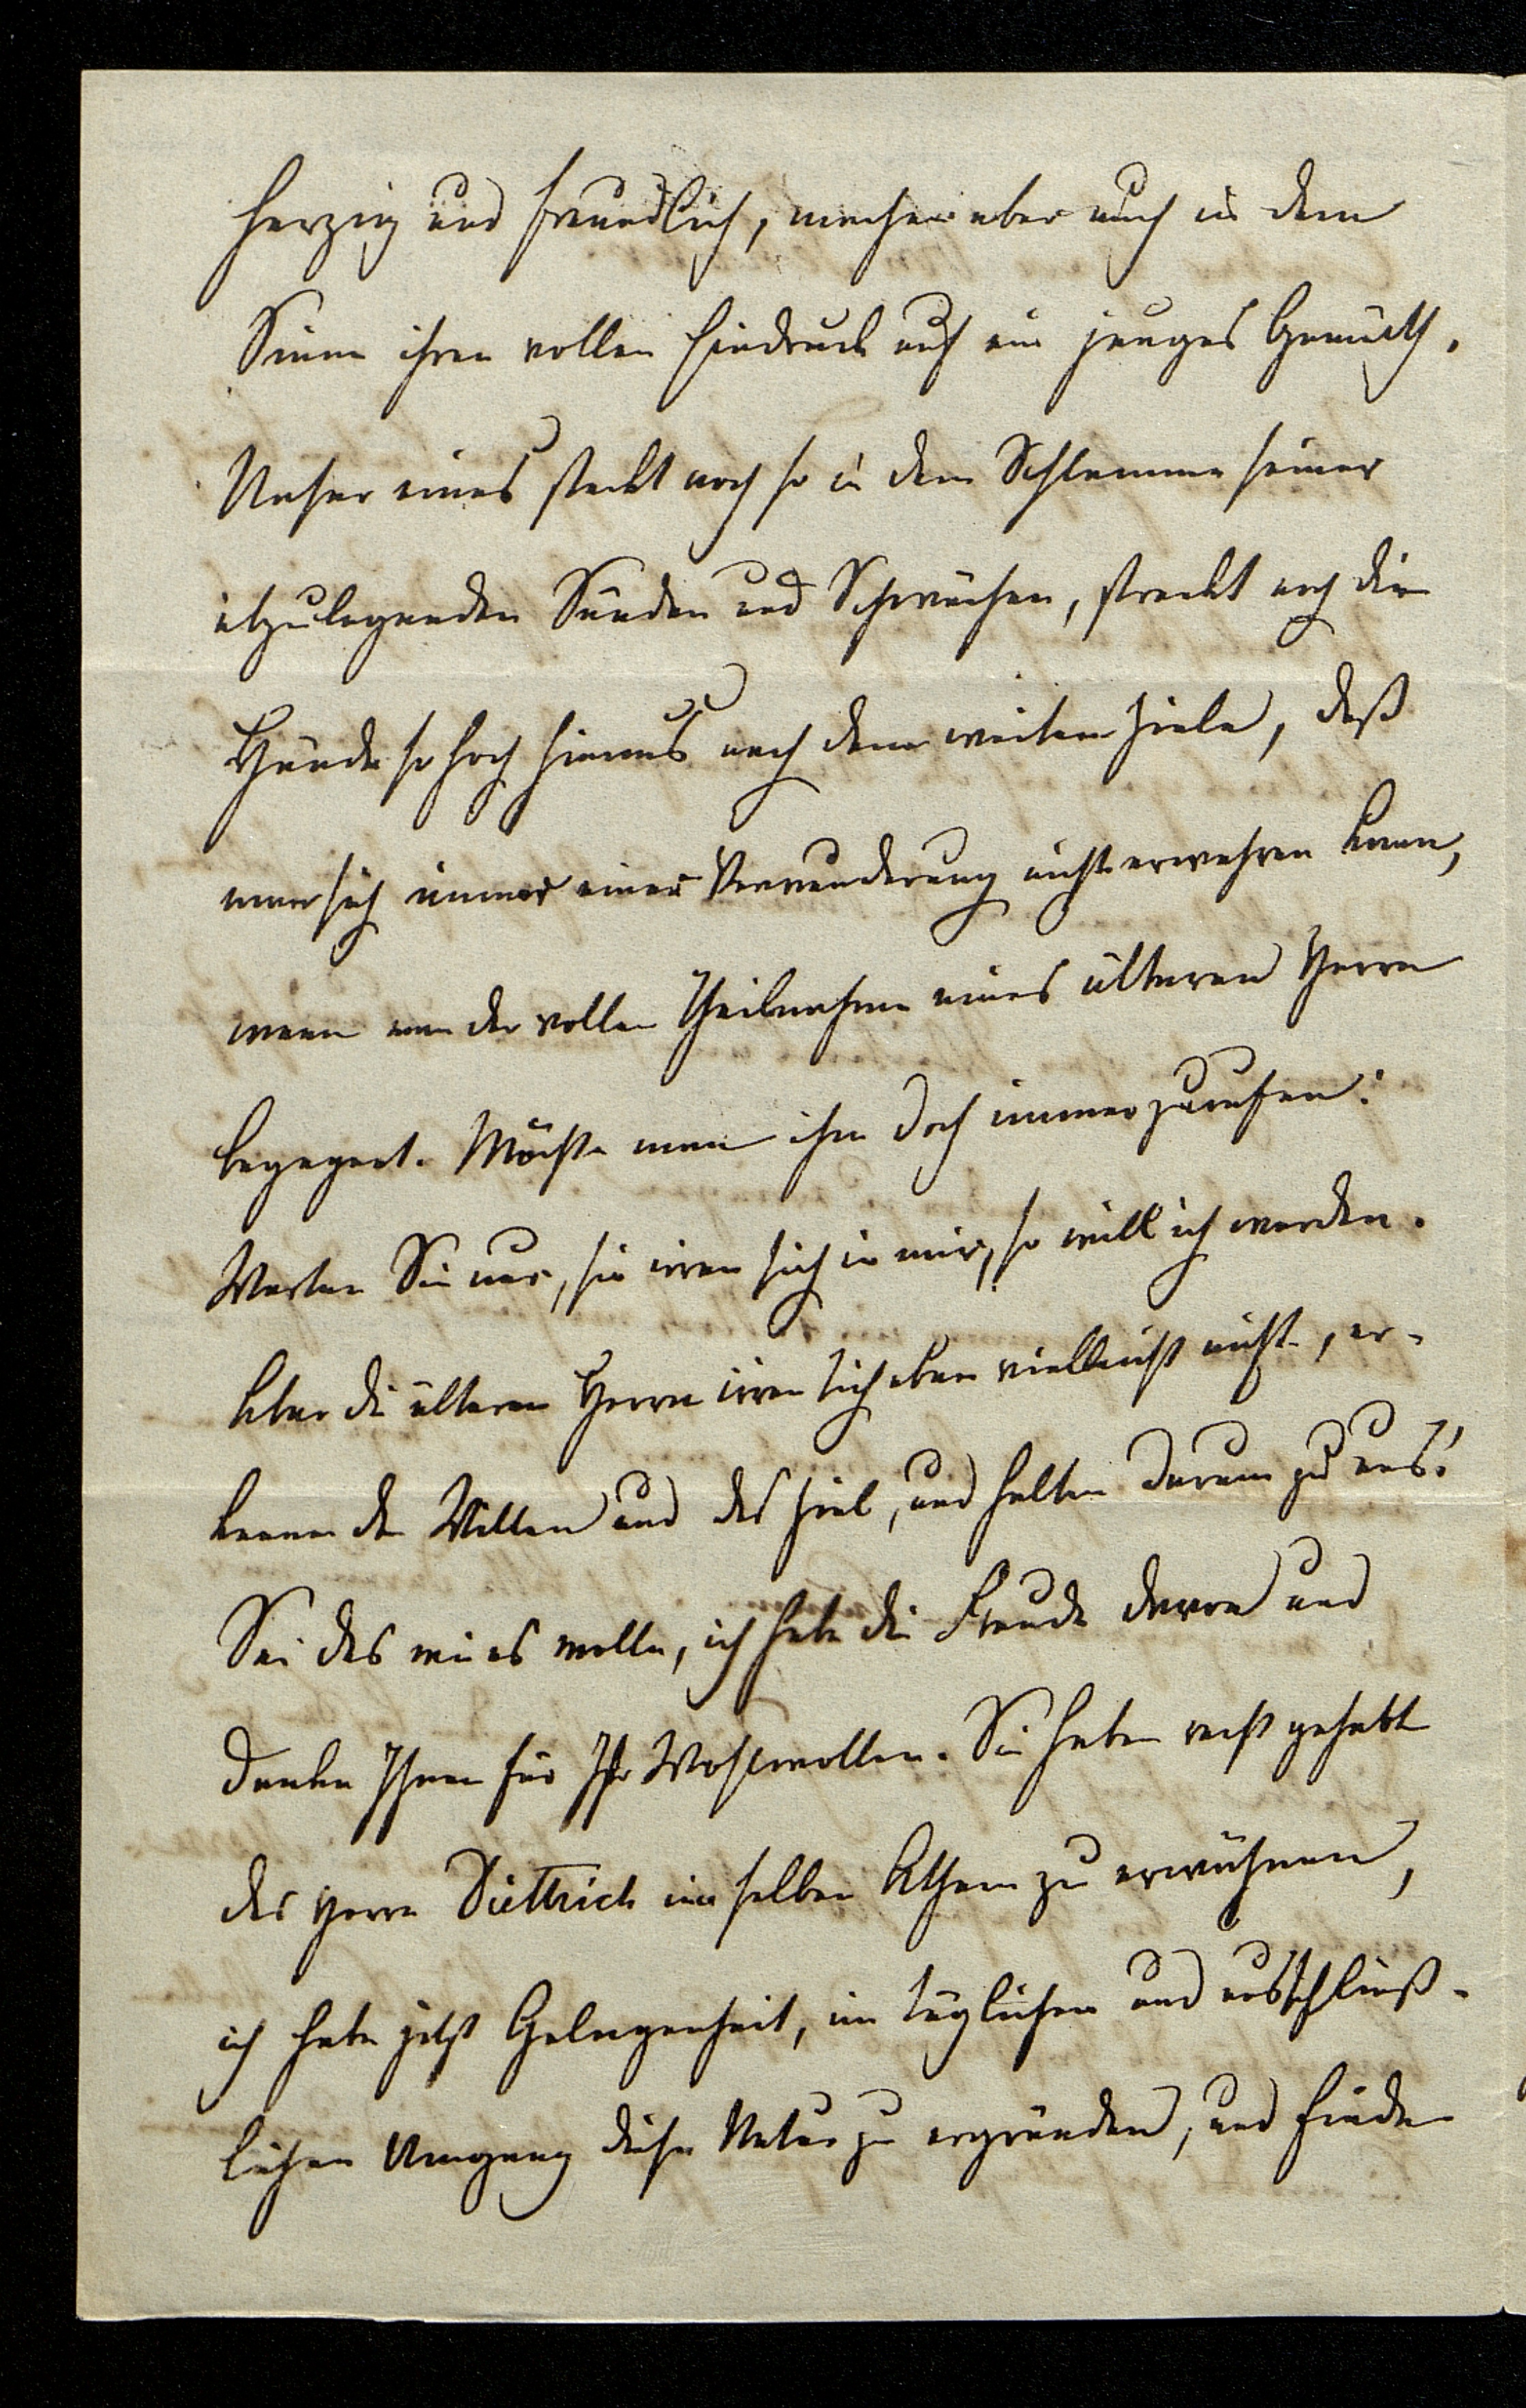 herzig und freundlich, machen aber auch in dem
Sinne ihren vollen Eindruck auf ein junges Gemüth.
Unser eines steckt noch so in dem Schlamme seiner
abzulegenden Sünden und Schwächen, streckt noch die
Hände so hoch hinaus nach dem weiten Ziele, daß
man sich immer einer Verwunderung nicht erwehren kann,
wenn man der vollen Theilnahme eines älteren Herrn
begegnet. Möchte man ihm doch immer zurufen:
Warten Sie nur, sie irren sich in mir, so will ich werden.
Aber die älteren Herrn irren sich eben vielleicht nicht, er-
kennen den Willen und das Ziel, und halten darum zu uns!
Sei das wie es wolle, ich habe die Freude davon und
danke Ihnen für Ihr Wohlwollen. Sie haben recht gehabt
des Herrn Diettrich im selben Athem zu erwähnen,
ich habe jetzt Gelegenheit, im täglichen und ausschließ-
lichen Umgang diese Natur zu ergründen, und finde